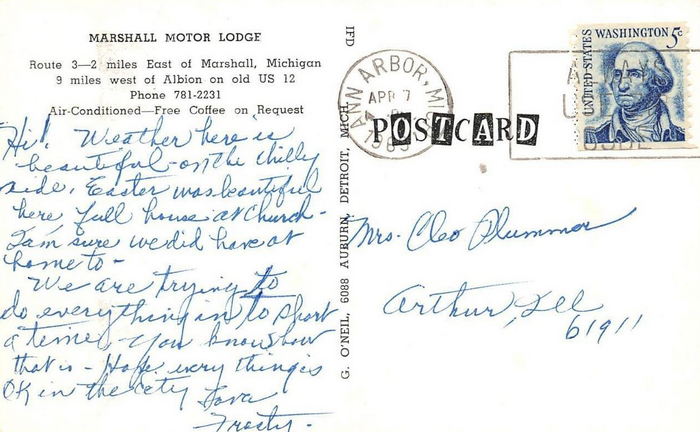 MARSHALL MOTOR LODGE
Route 3—2 miles East of Marshall, Michigan
9 miles west of Albion on old US 12
Phone 781-2231
Air-Conditioned—Free Coffee on Request
Hi! Weather here is
beautiful - on the chilly
side. Easter was beautiful
here, full house at Church -
I am sure we did have at
home to -
We are trying to
do everything in to short
a time, you know how
that is - Hope every thing is
OK in the city Love
Frosty -
G. O'NEIL, 6088 AUBURN, DETROIT, MICH.
IFD
ANN ARBOR, MI
APR 7
POSTCARD
UNITED STATES
WASHINGTON 5c
Mrs. Cleo Plummer
Arthur, Ill
61911